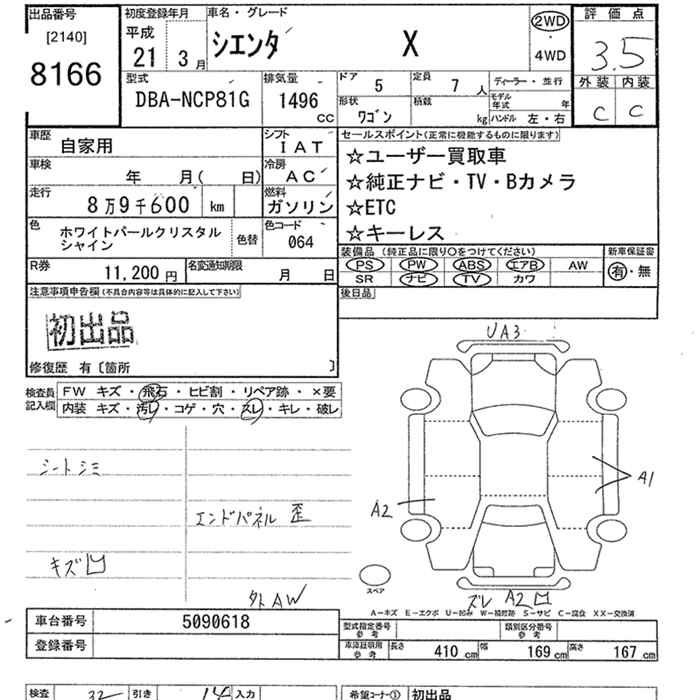 出品番号
[2140]
8166
初度登録年月
平成
21
3月
車名・グレード
シエンタ X
2WD
・
4WD
評価点
3.5
外装 内装
C C
型式
DBA-NCP81G
排気量
1496
CC
ドア
5
定員
7人
ディーラー・並行
形状
ワゴン
積載
kg
モデル年式
年
ハンドル 左・右
車歴
自家用
シフト
IAT
車検
年 月( 日)
冷房
AC
走行
8万9千600 km
燃料
ガソリン
色
ホワイトパールクリスタル
シャイン
色替
色コード
064
R券
11,200円
名変通知期限
月 日
セールスポイント(正常に機能するものに限ります)
☆ユーザー買取車
☆純正ナビ・TV・Bカメラ
☆ETC
☆キーレス
装備品 (純正品に限り○をつけてください)
PS PW ABS エアB AW
SR ナビ TV カワ
新車保証書
有・無
後日品
注意事項申告欄(不具合内容等は具体的に記入して下さい)
初出品
修復歴 有〔箇所 〕
検査員
記入欄
FW キズ・飛石・ヒビ割・リペア跡・×要
内装 キズ・汚レ・コゲ・穴・スレ・キレ・破レ
シートシミ
エンドパネル 歪
キズ凹
外AW
UA3
A1
A2
スペア
ズレ A2凹
A－キズ E－エクボ U－凹み W－補修跡 S－サビ C－腐食 XX－交換済
車台番号
5090618
登録番号
型式指定番号
参考
類別区分番号
参考
車庫証明用
参考
長さ 410cm
幅 169cm
高さ 167cm
検査
引き
入力
希望コーナー①
初出品